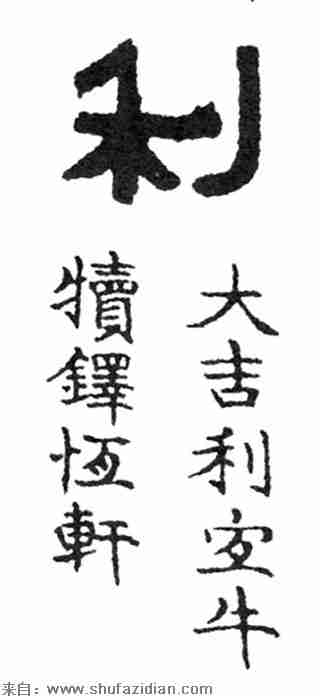 利
大吉利宜牛
犢鐸恆軒
来自：www.shufazidian.com